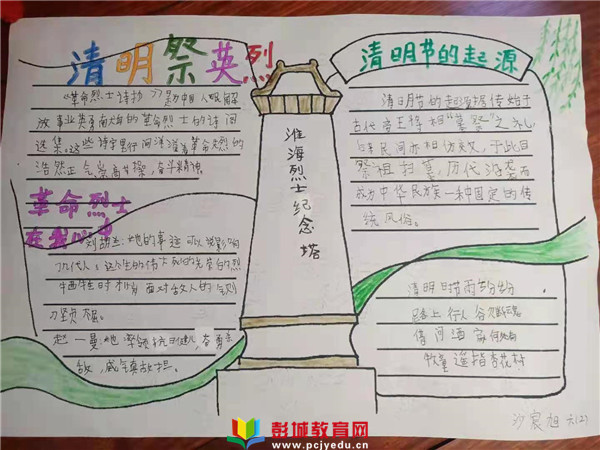 清明祭英烈
《革命烈士诗抄》是为中国人民解
放事业英勇献身的革命烈士的诗词
选集,这些诗字里行间洋溢着革命先烈的
浩然正气崇高节操,奋斗精神。
革命烈士
在我心中
刘胡兰:她的事迹可以影响
几代人,
牺牲时才 面对敌人的
坚贞不屈。
赵一曼:她 抗日 奋勇杀
敌,威
淮海烈士纪念塔
清明节的起源
清明节的起源据传始于
古代帝王将相"墓祭"之礼,
后来民间亦相仿效,于此日
祭祖扫墓,历代沿袭而
成为中华民族一种固定的传
统风俗。
清明时节雨纷纷
路上行人欲断魂
借问酒家何处有
牧童遥指杏花村
沙宸旭 六(2)
彭城教育网
www.pcjyedu.cn